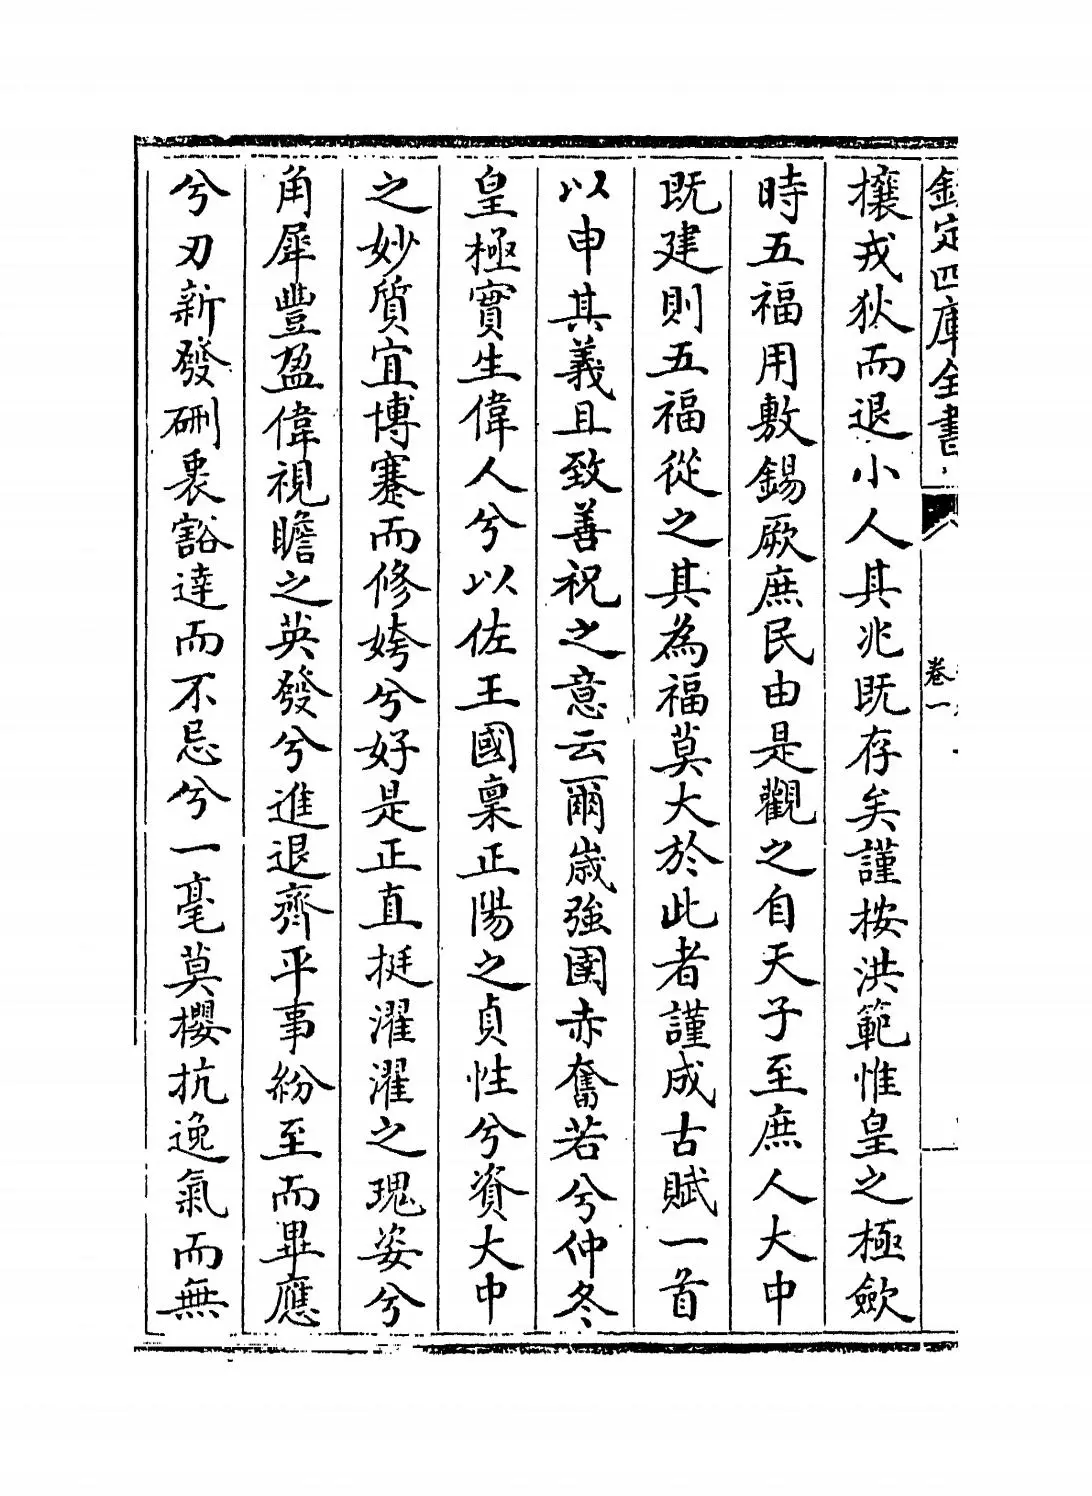 欽定四庫全書
卷一
攘戎狄而退小人其兆既存矣謹按洪範惟皇之極歛
時五福用敷錫厥庶民由是觀之自天子至庶人大中
既建則五福從之其為福莫大於此者謹成古賦一首
以申其義且致善祝之意云爾歳強圉赤奮若兮仲冬
皇極實生偉人兮以佐王國稟正陽之貞性兮資大中
之妙質宜博蹇而修姱兮好是正直挺濯濯之瑰姿兮
角犀豐盈偉視瞻之英發兮進退齊平事紛至而畢應
兮刃新發硎裏豁達而不忌兮一毫莫櫻抗逸氣而無